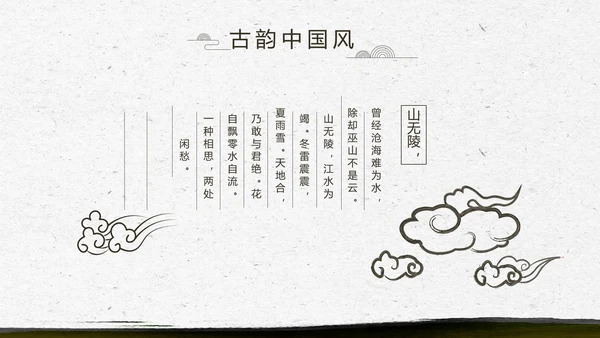 古韵中国风
山无陵，
曾经沧海难为水，
除却巫山不是云。
山无陵，江水为
竭。冬雷震震，
夏雨雪。天地合，
乃敢与君绝。花
自飘零水自流。
一种相思，两处
闲愁。